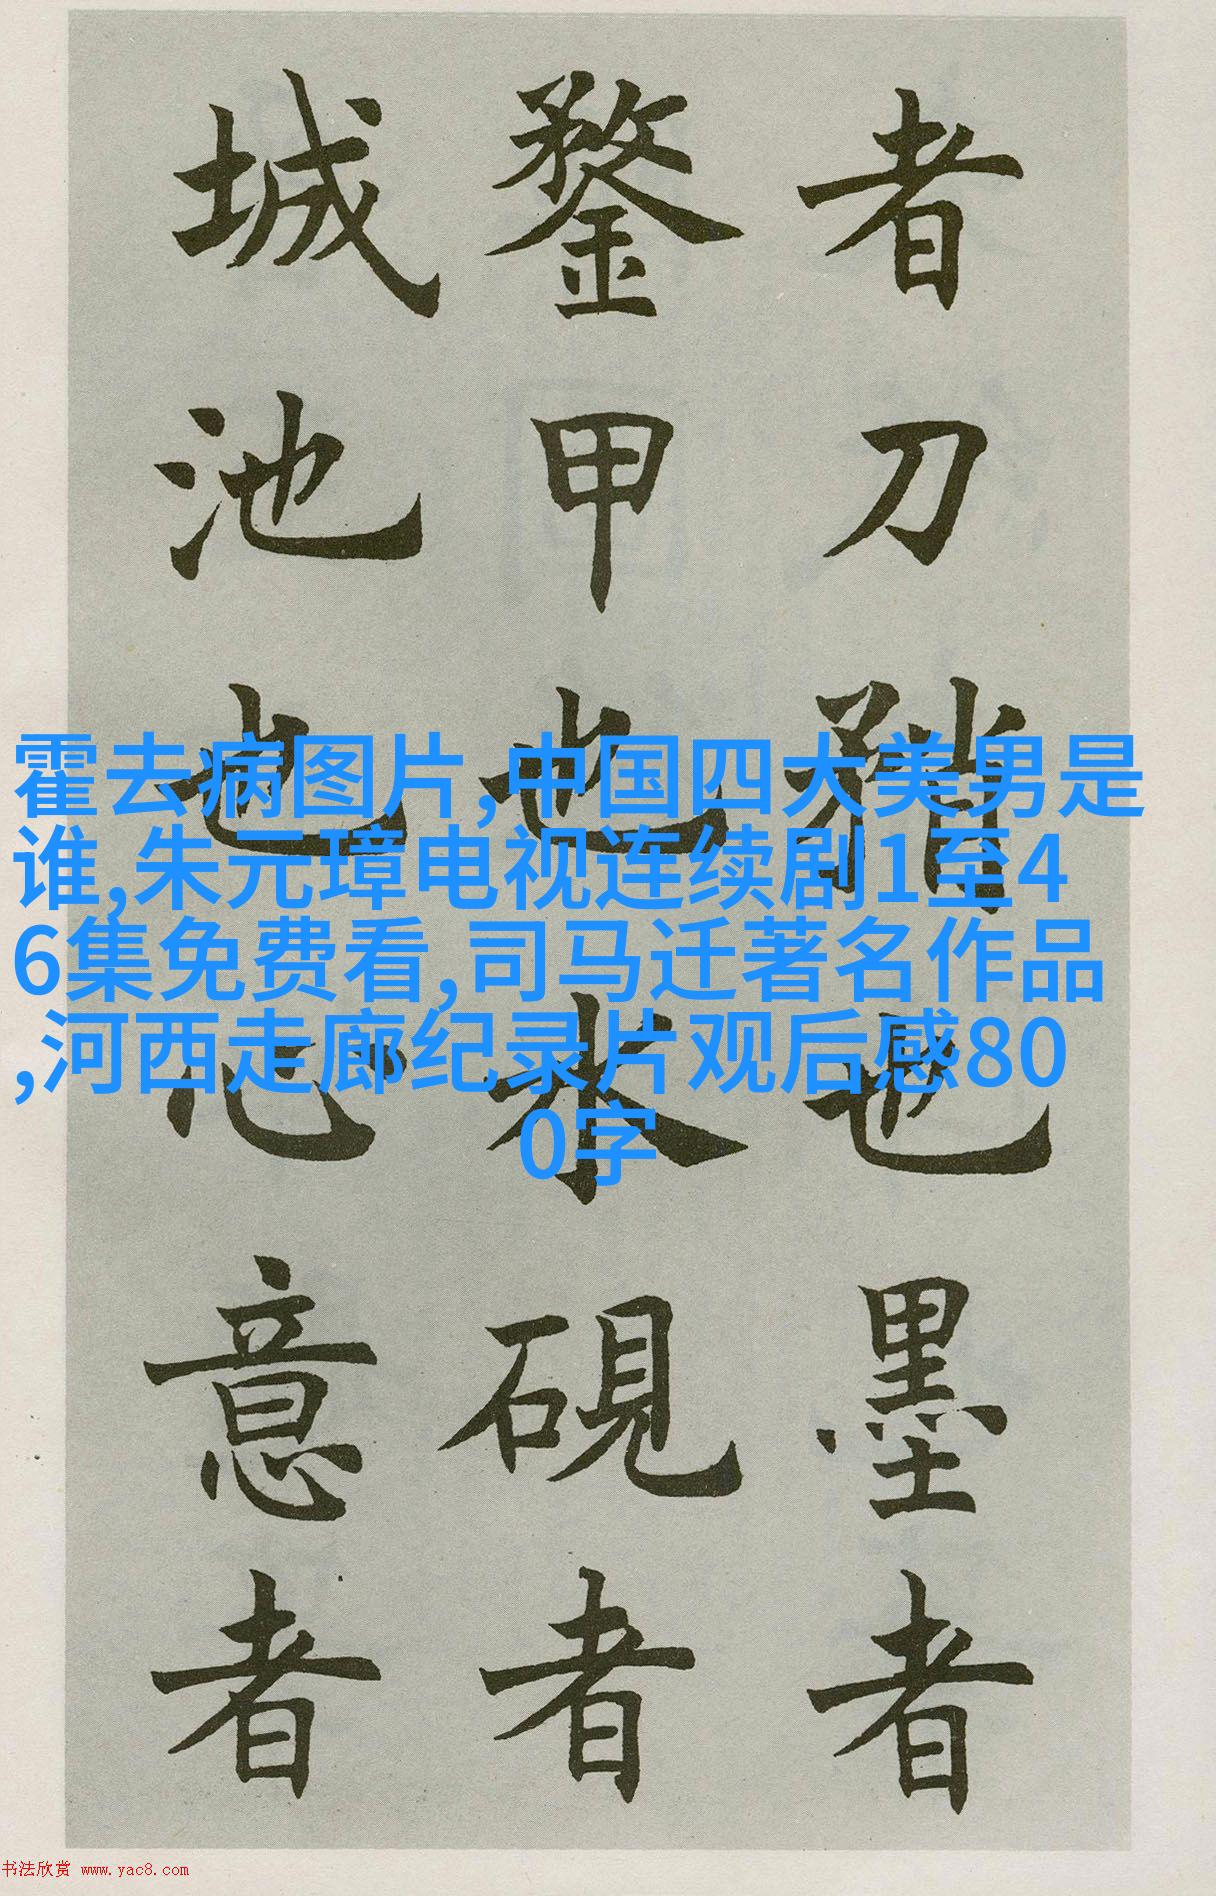 者刀矟也墨者
鍪甲也水硯者
城池也心意者
霍去病图片,中国四大美男是
谁,朱元璋电视连续剧1至4
6集免费看,司马迁著名作品
,河西走廊纪录片观后感80
0字
书法欣赏 www.yac8.com